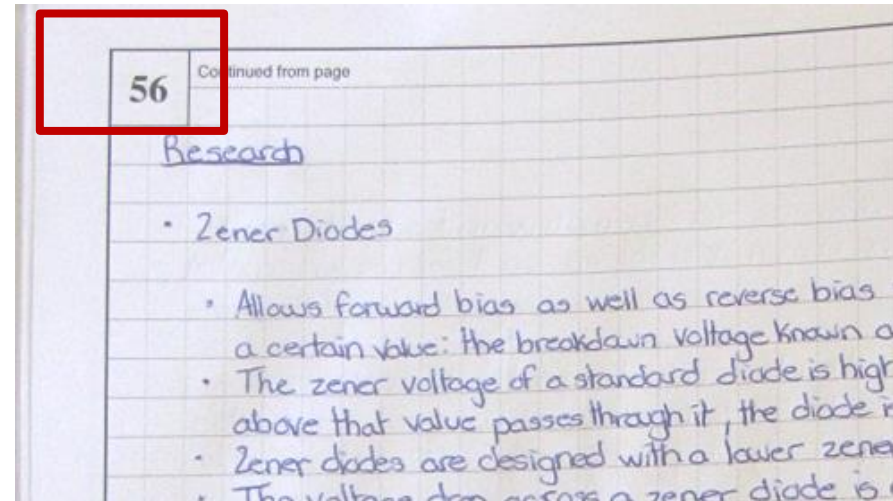 56
Continued from page
Research
· Zener Diodes
· Allows forward bias as well as reverse bias
a certain value: the breakdown voltage known a
· The zener voltage of a standard diode is high
above that value passes through it, the diode
· Zener diodes are designed with a lower zene
· The voltage drop across a zener diode is